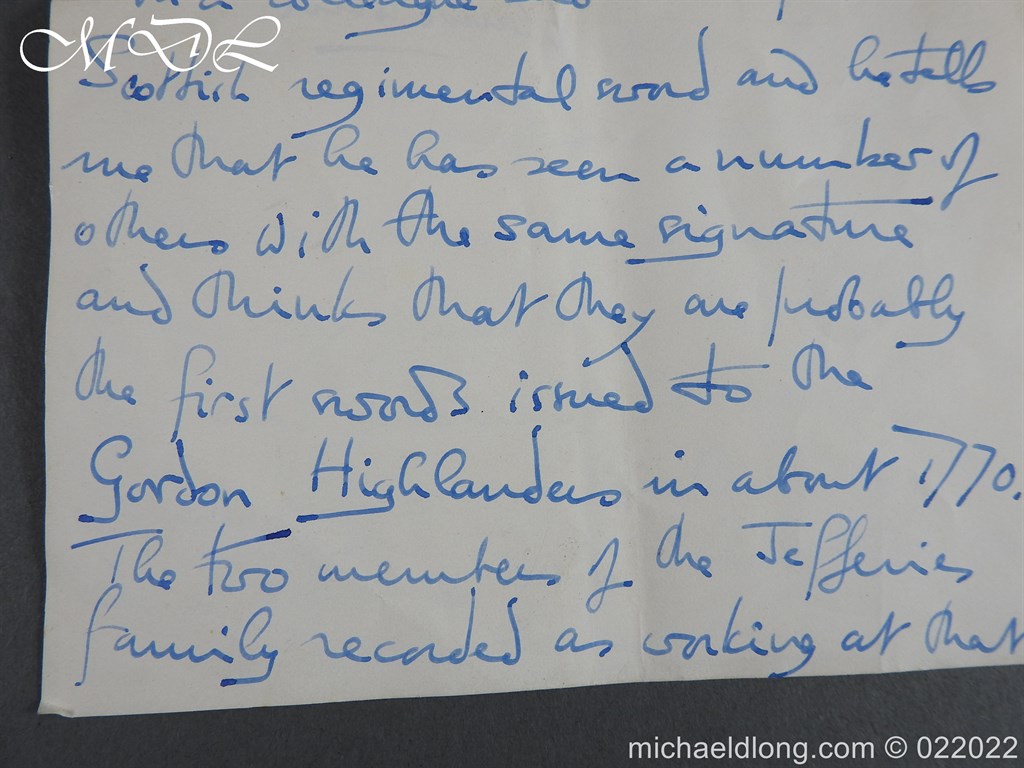 MDL
a colleague
Scottish regimental sword and he tells
me that he has seen a number of
others with the same signature
and thinks that they are probably
the first swords issued to the
Gordon Highlanders in about 1770.
The two members of the Jefferies
family recorded as working at that
michaeldlong.com © 022022